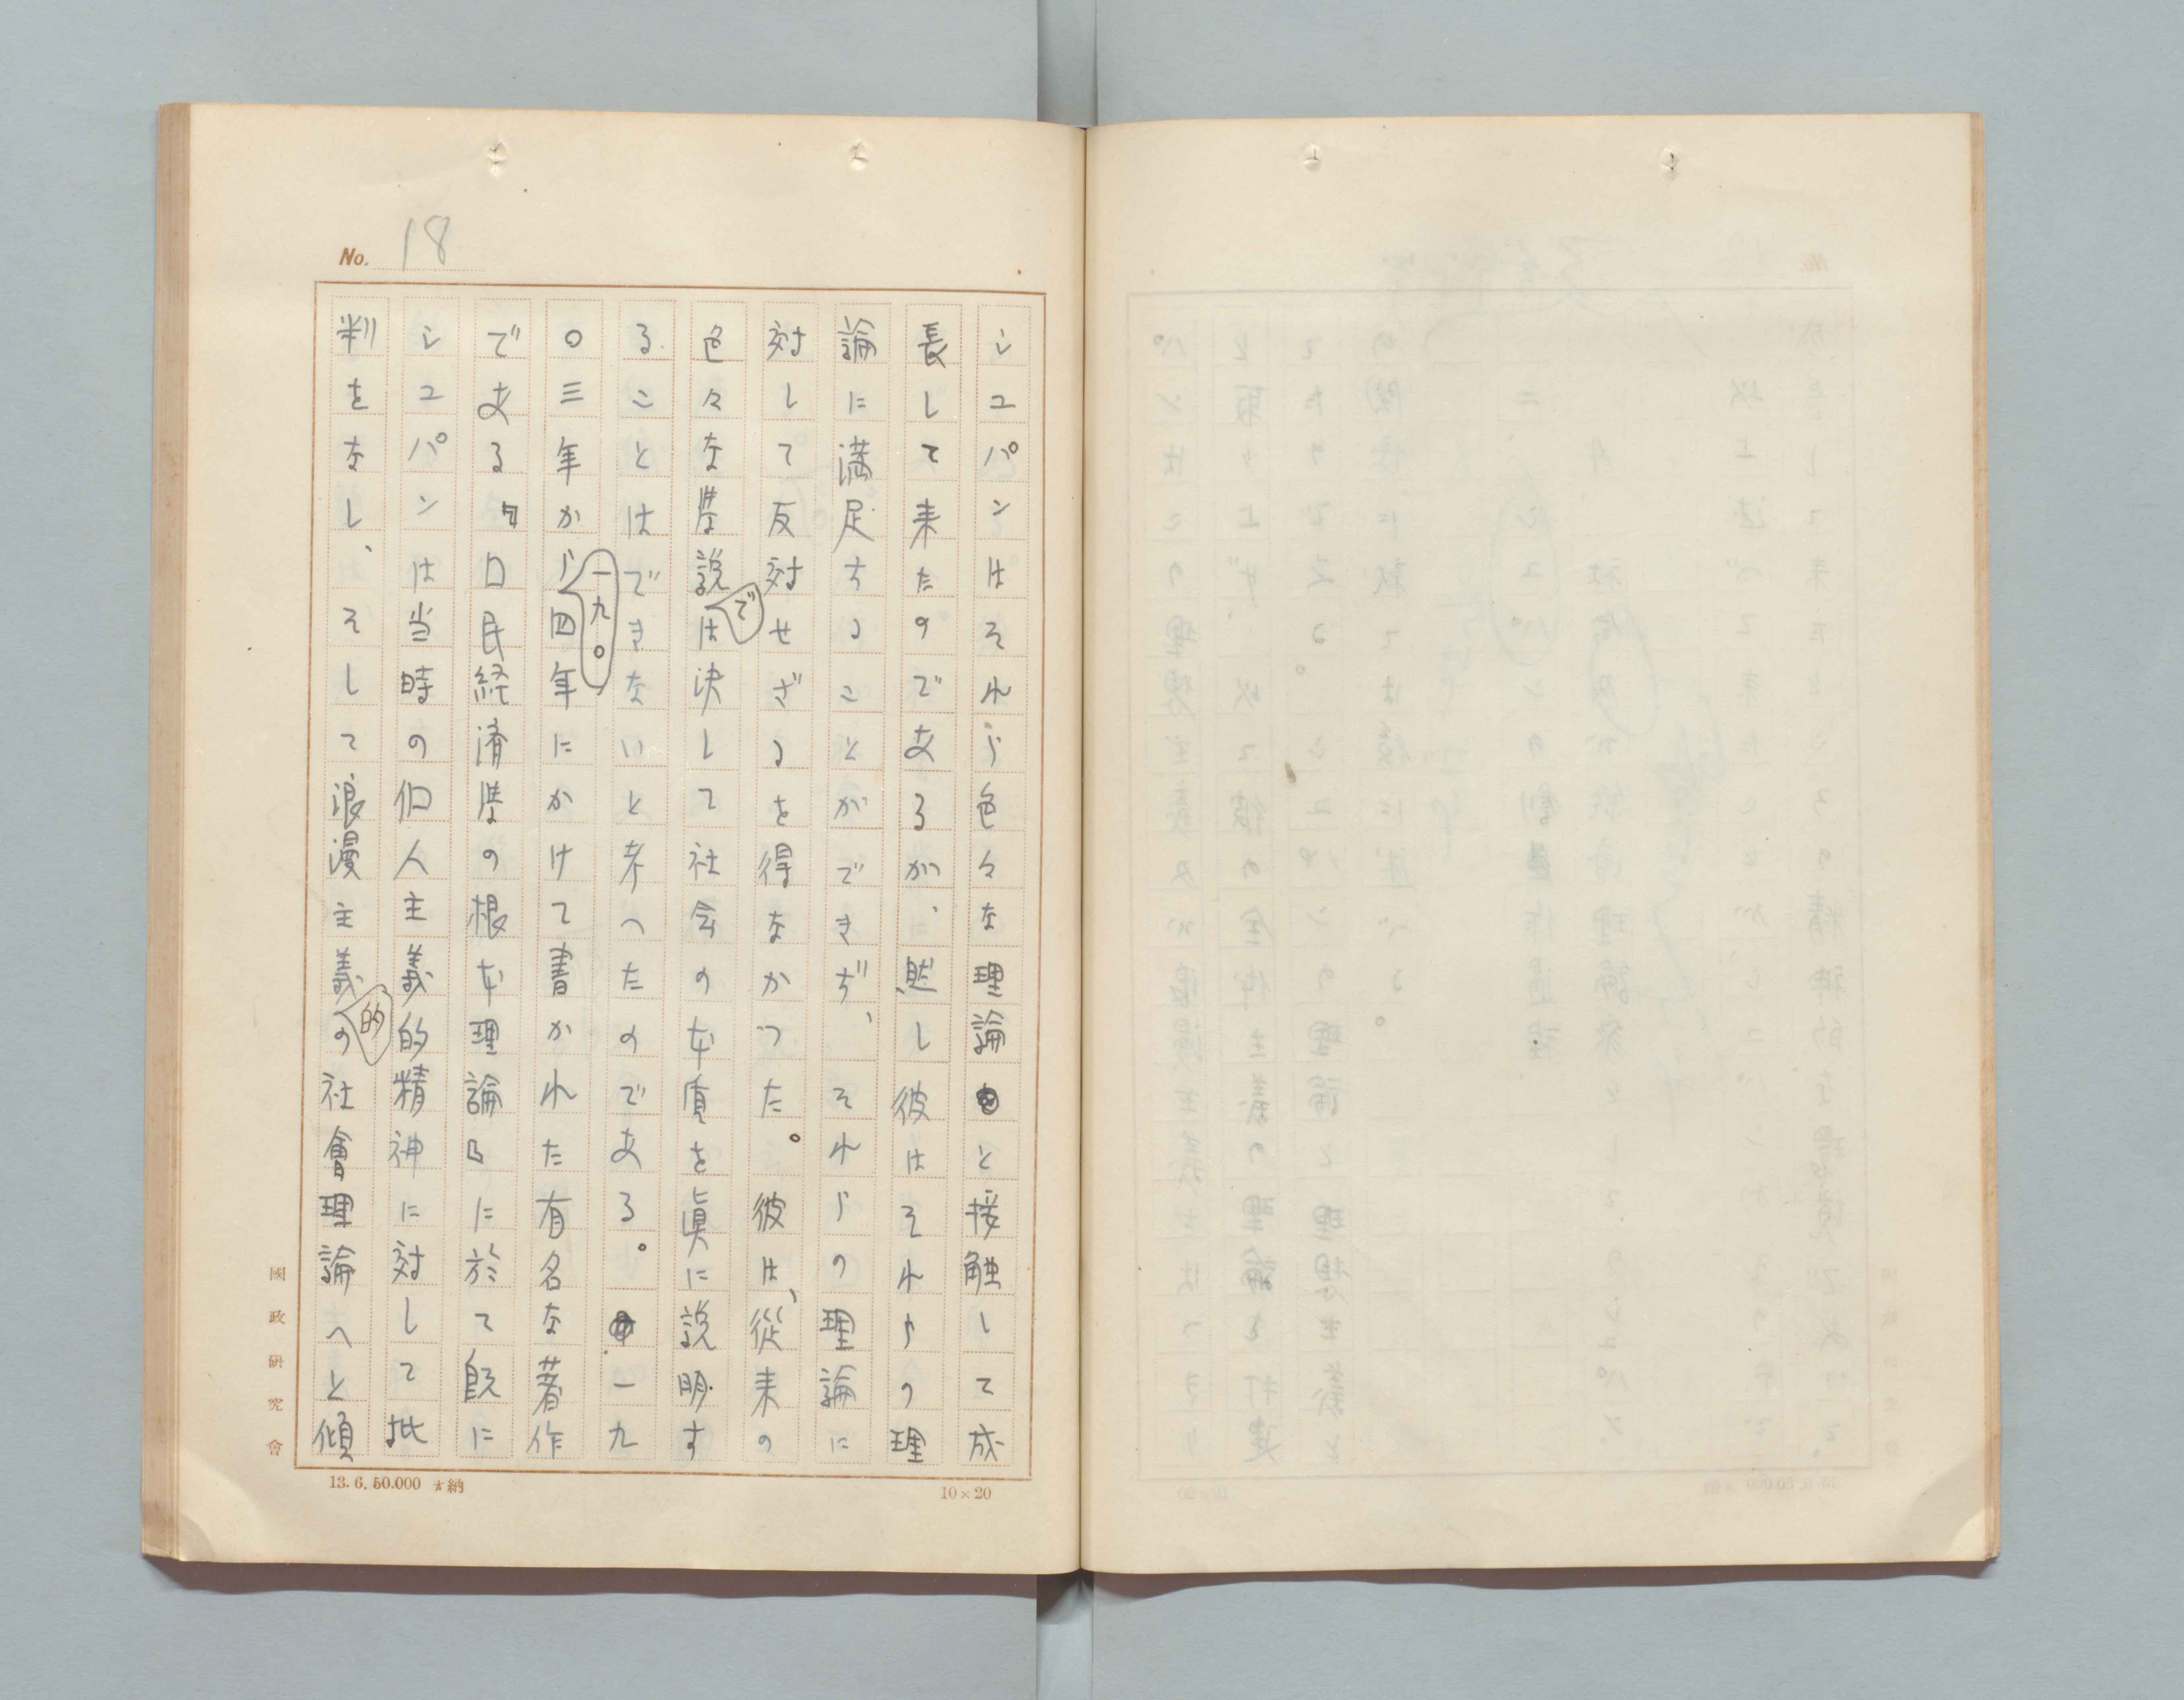 No. 18
シュパンはそれら色々な理論と接触して成
長して来たのであるが、然し彼はそれらの理
論に満足することができず、それらの理論に
対して反対せざるを得なかつた。彼は、從来の
色々な学説では決して社会の本质を眞に説明す
ることはできないと考へたのである。一九
〇三年から一九〇四年にかけて書かれた有名な著作
である『囗民経済学の根本理論』に於て既に
シュパンは当時の個人主義的精神に対して批
判をなし、そして浪漫主義的の社會理論へと傾
國政研究會
13.6.50.000 納
10×20